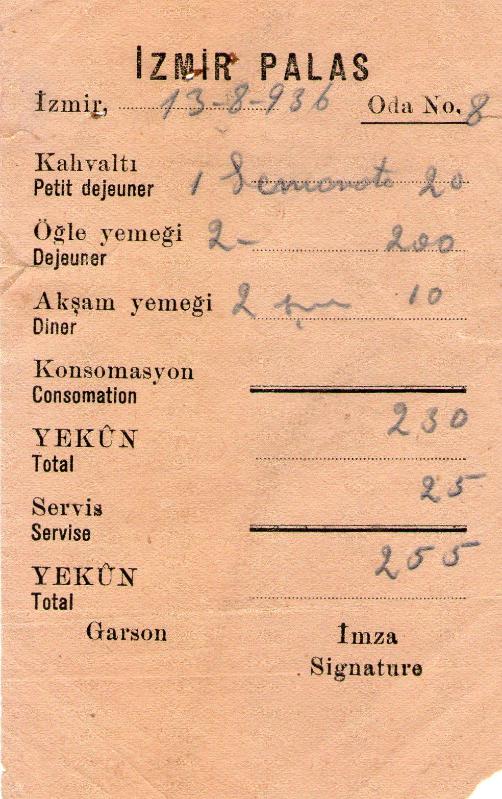 İZMİR PALAS
İzmir, 13-8-936 Oda No. 8
Kahvaltı
Petit dejeuner 1 20
Öğle yemeği 2- 200
Dejeuner
Akşam yemeği 2 10
Diner
Konsomasyon
Consomation
230
YEKÛN
Total
25
Servis
Servise
255
YEKÛN
Total
Garson İmza
Signature